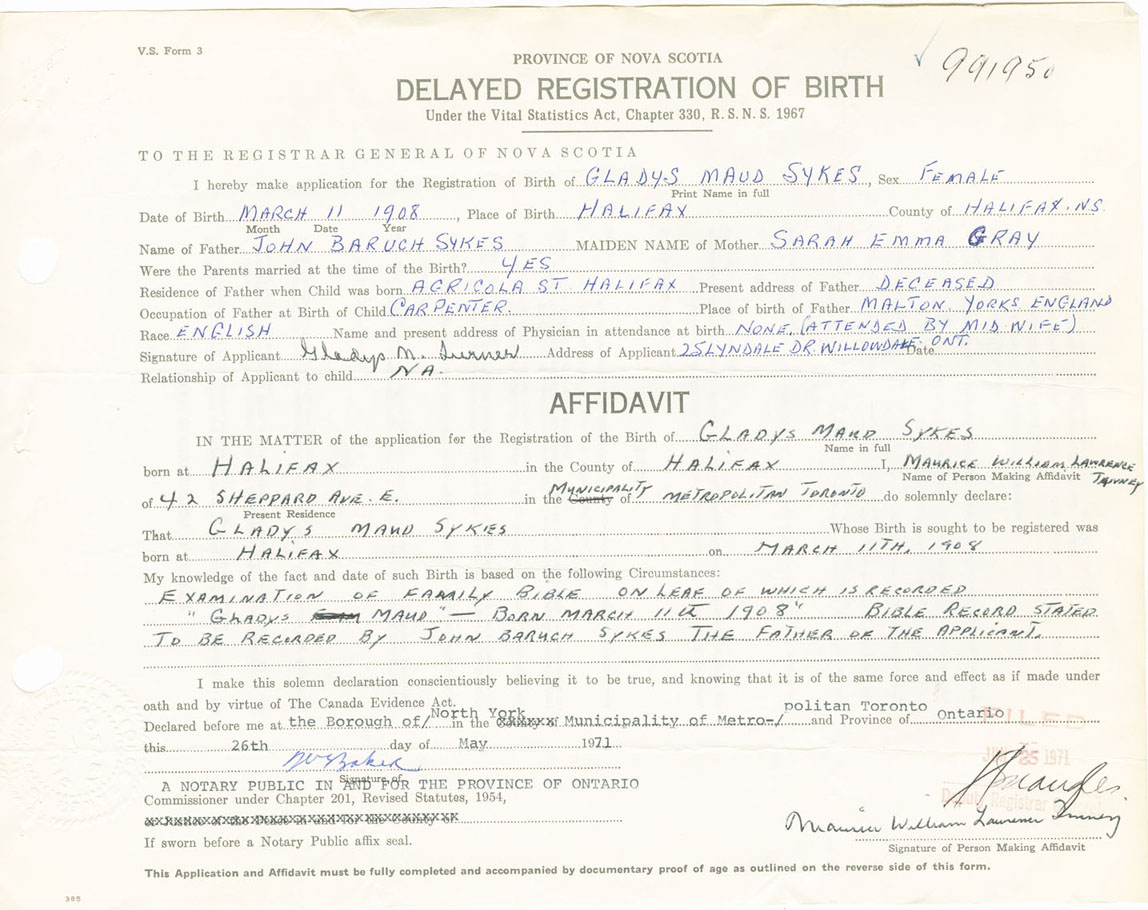 V.S. Form 3
991950
PROVINCE OF NOVA SCOTIA
DELAYED REGISTRATION OF BIRTH
Under the Vital Statistics Act, Chapter 330, R.S.N.S. 1967
TO THE REGISTRAR GENERAL OF NOVA SCOTIA
I hereby make application for the Registration of Birth of GLADYS MAUD SYKES, Sex FEMALE
Print Name in full
Date of Birth MARCH 11 1908, Place of Birth HALIFAX County of HALIFAX. NS
Month Date Year
Name of Father JOHN BARUCH SYKES MAIDEN NAME of Mother SARAH EMMA GRAY
Were the Parents married at the time of the Birth? YES
Residence of Father when Child was born AGRICOLA ST HALIFAX Present address of Father DECEASED
Occupation of Father at Birth of Child CARPENTER. Place of birth of Father MALTON YORKS ENGLAND
Race ENGLISH Name and present address of Physician in attendance at birth NONE. (ATTENDED BY MIDWIFE)
Signature of Applicant Gladys M. Turner Address of Applicant 25 LYNDALE DR. WILLOWDALE ONT. Date
Relationship of Applicant to child NA.
AFFIDAVIT
IN THE MATTER of the application for the Registration of the Birth of GLADYS MAUD SYKES
Name in full
born at HALIFAX in the County of HALIFAX I, MAURICE WILLIAM LAWRENCE
Name of Person Making Affidavit
of 42 SHEPPARD AVE. E. in the County MUNICIPALITY of METROPOLITAN TORONTO do solemnly declare:
Present Residence
That GLADYS MAUD SYKES Whose Birth is sought to be registered was
born at HALIFAX on MARCH 11TH, 1908
My knowledge of the fact and date of such Birth is based on the following Circumstances:
EXAMINATION OF FAMILY BIBLE ON LEAF OF WHICH IS RECORDED
"GLADYS MAUD" — BORN MARCH 11th 1908" BIBLE RECORD STATED
TO BE RECORDED BY JOHN BARUCH SYKES THE FATHER OF THE APPLICANT.
I make this solemn declaration conscientiously believing it to be true, and knowing that it is of the same force and effect as if made under
oath and by virtue of The Canada Evidence Act.
Declared before me at the Borough of/North York in the Municipality of Metro-/politan Toronto and Province of Ontario
this 26th day of May 1971
FILED
25 1971
Signature of
A NOTARY PUBLIC IN AND FOR THE PROVINCE OF ONTARIO
Deputy Registrar
Commissioner under Chapter 201, Revised Statutes, 1954,
Maurice William Lawrence
If sworn before a Notary Public affix seal.
Signature of Person Making Affidavit
This Application and Affidavit must be fully completed and accompanied by documentary proof of age as outlined on the reverse side of this form.
385